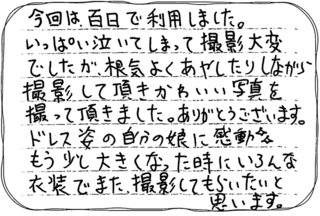 今回は百日で利用しました。
いっぱい泣いてしまって撮影大変
でしたが、根気よくあやしたりしながら
撮影して頂きかわいい写真を
撮って頂きました。ありがとうございます。
ドレス姿の自分の娘に感動
もう少し大きくなった時にいろんな
衣装でまた、撮影してもらいたいと
思います。